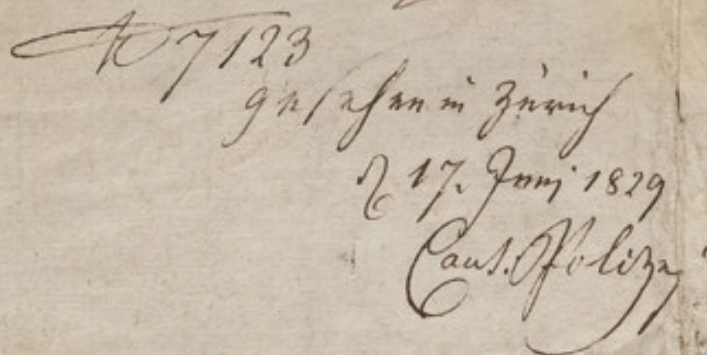 No 7123
gesehen in Zürich
d 17. Juni 1829
Cant. Polizey